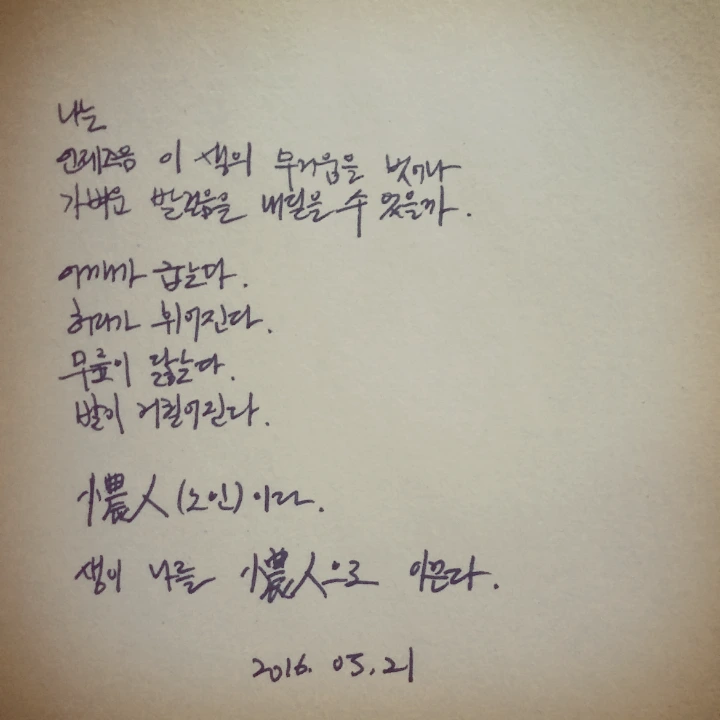 나는
언제쯤 이 생의 무거움을 벗어나
가벼운 발걸음을 내딛을 수 있을까.
어깨가 굽는다.
허리가 휘어진다.
무릎이 닳는다.
발이 거칠어진다.
憹人(노인)이라.
생이 나를 憹人으로 이끈다.
2016. 05. 21